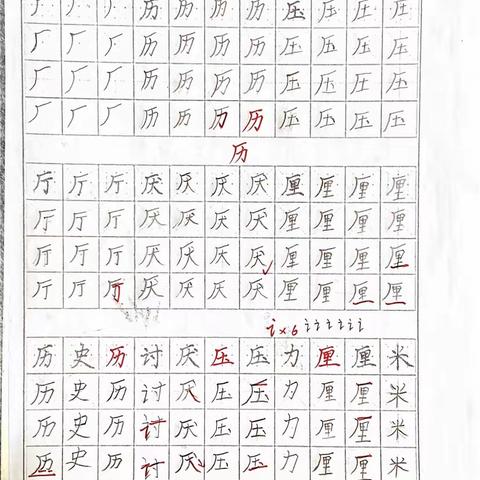 厂厂厂历历历历压压压压
厂厂厂历历历历压压压压
厂厂厂历历历历压压压压
厂厂厂历历历历压压压压
历
厅厅厅厌厌厌厌厘厘厘厘
厅厅厅厌厌厌厌厘厘厘厘
厅厅厅厌厌厌厌厘厘厘厘
厅厅厅厌厌厌厌厘厘厘厘
讠×6 讠讠讠讠讠讠
历史历讨厌压压力厘厘米
历史历讨厌压压力厘厘米
历史历讨厌压压力厘厘米
历史历讨厌压压力厘厘米